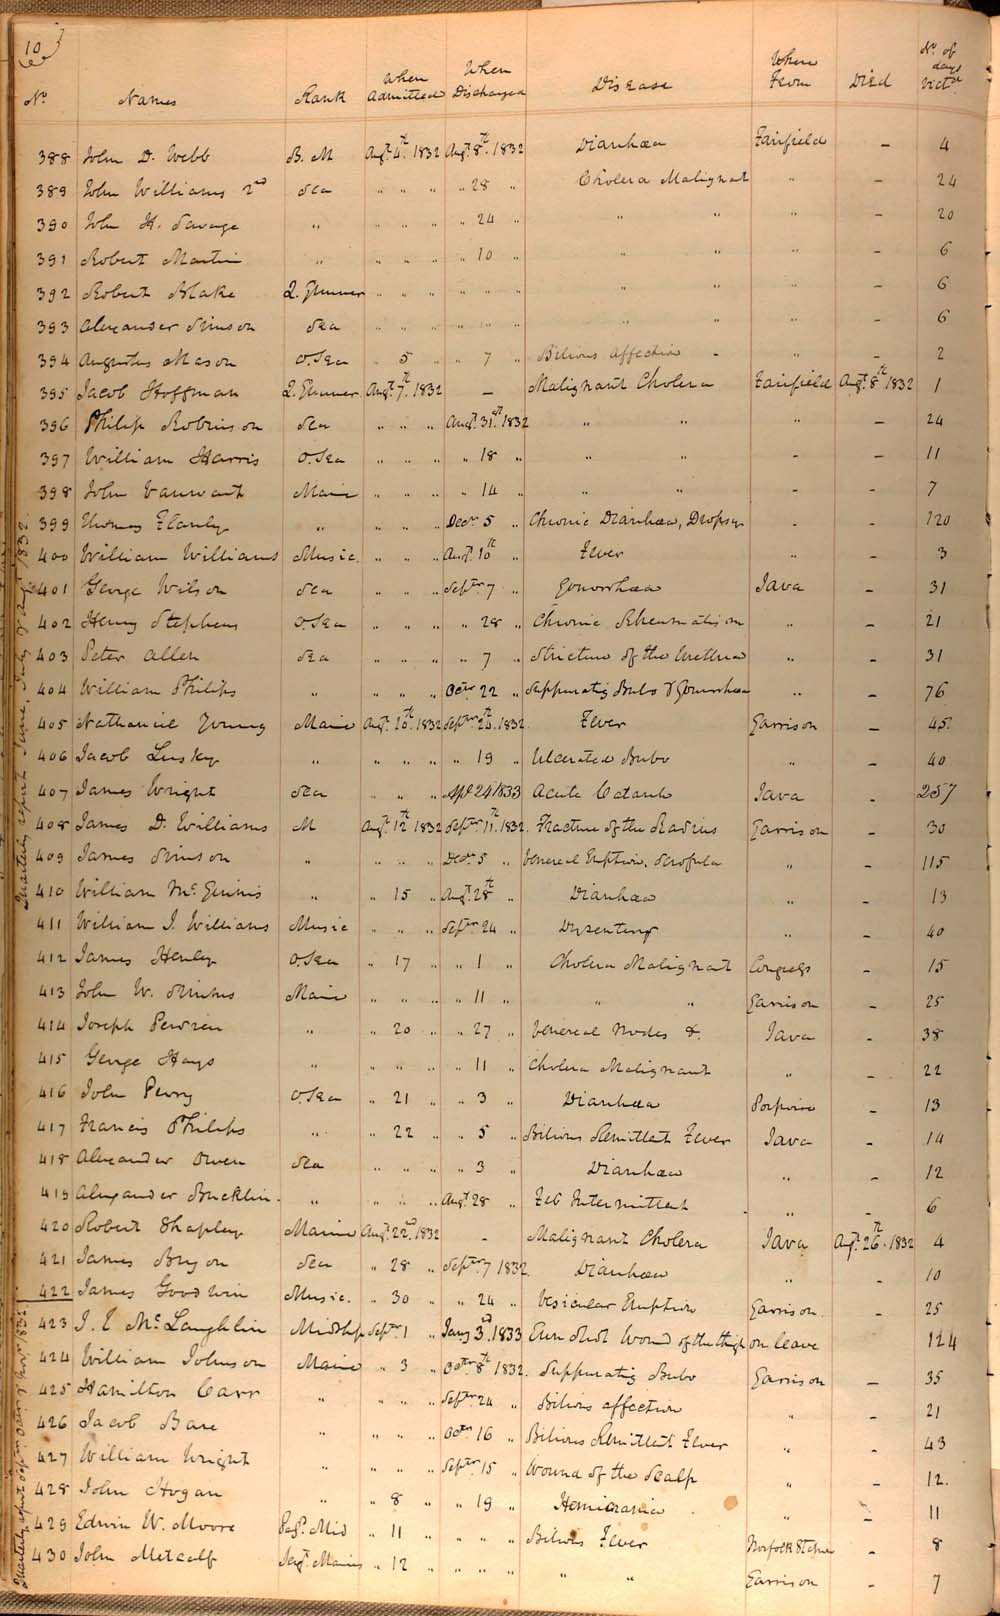 10
No. Names Rank When Admitted When Discharged Disease Where From Died No. of days Vict'd
388 John D. Webb B. M Augt. 4th. 1832 Augt. 8th. 1832 Diarrhœa Fairfield - 4
389 John Williams 2nd Sea " " " " 28 " Cholera Malignat " - 24
390 John H. Savage " " " " " 24 " " " " - 20
391 Robert Martin " " " " " 10 " " " " - 6
392 Robert Blake Q. Gunner " " " " " " " " " - 6
393 Alexander Simson Sea " " " " " " " " " - 6
394 Augustus Mason O. Sea " 5 " " 7 " Bilious Affection - " - 2
395 Jacob Hoffman Q. Gunner Augt. 7th. 1832 - Malignant Cholera Fairfield Augt. 8th 1832 1
396 Philip Robinson Sea " " " Augt. 31st. 1832 " " " - 24
397 William Harris O. Sea " " " " 18 " " " - - 11
398 John Vanwart Marine " " " " 14 " " " - - 7
399 Thomas Flanly " " " " Decr 5 " Chronic Diarrhœa, Dropsy - - 120
400 William Williams Music. " " " Augt. 10th " Fever " - 3
401 George Wilson Sea " " " Septr. 7 " Gonorrhœa Java - 31
402 Henry Stephens O. Sea " " " " 28 " Chronic Rheumatism " - 21
403 Peter Allen Sea " " " " 7 " Stricture of the Urethra " - 31
404 William Philips " " " " Octr 22 " Suppuratig Bubo & Gonorrhœa " - 76
405 Nathaniel Young Marine Augt. 10th. 1832 Septr 20th. 1832. Fever Garrison - 45.
406 Jacob Lusky " " " " " 19 " Ulcerated Bubo " - 40
407 James Wright Sea " " " Apl 24 1833 Acute Catarrh Java - 257
408 James D. Williams M Augt. 12th 1832 Septr. 11th. 1832. Fracture of the Radius Garrison - 30
409 James Simson " " " " Decr 5 " Venereal Eruption, Scrofula " - 115
410 William Mc. " 15 " Augt. 28th " Diarrhœa " - 13
411 William J. Williams Music " " " Septr. 24 " Dysentery " - 40
412 James Henly O. Sea " 17 " " 1 " Cholera Malignat Congress - 15
413 John W. Marine " " " " 11 " " " Garrison - 25
414 Joseph " " 20 " " 27 " Venereal Nodes &. Java - 38
415 George Hays " " " " " 11 " Cholera Malignant " - 22
416 John Perry O. Sea " 21 " " 3 " Diarrhœa Porpoise - 13
417 Francis Philips " " 22 " " 5 " Bilious Remittent Fever Java - 14
418 Alexander Owen Sea " " " " 3 " Diarrhœa " - 12
419 Alexander Bucklin. " " " " Augt 28 " Feb Intermittent " - 6
420 Robert Shapley Marine Augt. 22nd. 1832 - Malignant Cholera Java Augt. 26th. 1832 4
421 James Bryon Sea " 28 " Septr. 7 1832. Diarrhœa " - 10
422 James Goodwin Music. " 30 " " 24 " Vesicular Eruption Garrison. - 25
423 J. E Mc. Laughlin Midshp Septr. 1 " Jany 3rd. 1833 Gun Shot Wound of the thigh on leave 124
424 William Johnson Marine " 3 " Octr. 8th 1832. Suppuratig Bubo Garrison - 35
425 Hamilton Carr " " " " Septr. 24 " Bilious affection " - 21
426 Jacob Bare " " " " Octr. 16 " Bilious Remittent Fever " - 43
427 William Wright " " " " Septr. 15 " Wound of the Scalp " - 12.
428 John Hogan " " 8 " " 19 " Hemicrania " - 11
429 Edwin W. Moore Pasd. Mid " 11 " " " " Bilious Fever Norfolk - 8
430 John Metcalf Sergt. Marines " 12 " " " " " " Garrison - 7
Quarterly report June, July & Augt 1832.
Quarterly report Septr. Octr. & Novr. 1832.